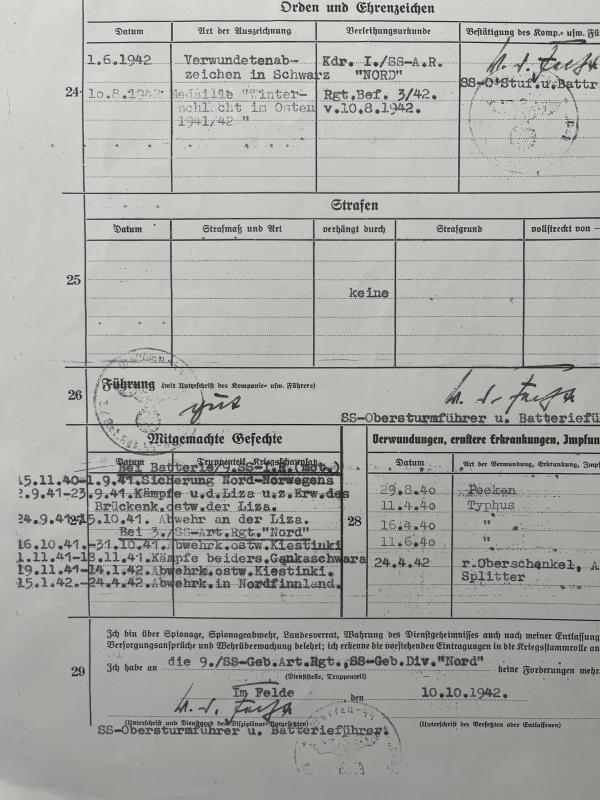 Orden und Ehrenzeichen
Datum Art der Auszeichnung Verleihungsurkunde Bestätigung des Komp.- usw. Fü
24
1.6.1942 Verwundetenab- Kdr. I./SS-A.R.
zeichen in Schwarz "NORD"
SS-O'Stuf.u.Battr
10.8.1942 Medaille "Winter- Rgt.Bef. 3/42.
schlacht im Osten v.10.8.1942.
1941/42 "
Strafen
Datum Strafmaß und Art verhängt durch Strafgrund vollstreckt von —
25
keine
26 Führung (mit Unterschrift des Kompanie- usw. Führers)
gut
SS-Obersturmführer u. Batteriefü
Mitgemachte Gefechte
Datum Truppenteil
Bei Batterie/9.SS-I.R.(mot.)
15.11.40-1.9.41.Sicherung Nord-Norwegens
2.9.41-23.9.41.Kämpfe u.d.Liza u.z.Erw.des
Brückenk.ostw.der Liza.
24.9.41-15.10.41. Abwehr an der Liza.
27
Bei 3./SS-Art.Rgt."Nord"
16.10.41.-31.10.41.Abwehrk.ostw.Kiestinki
1.11.41-18.11.41.Kämpfe beiders.Gankaschwara
19.11.41-14.1.42.Abwehrk.ostw.Kiestinki.
15.1.42.-24.4.42.Abwehrk.in Nordfinnland.
Verwundungen, ernstere Erkrankungen, Impfun
Datum Art der Verwundung, Erkrankung, Impf
28
29.8.40 Pocken
11.4.40 Typhus
16.4.40 "
11.6.40 "
24.4.42 r.Oberschenkel, A
Splitter
29
Ich bin über Spionage, Spionageabwehr, Landesverrat, Wahrung des Dienstgeheimnisses auch nach meiner Entlassung
Versorgungsansprüche und Wehrüberwachung belehrt; ich erkenne die vorstehenden Eintragungen in die Kriegsstammrolle an
Ich habe an die 9./SS-Geb.Art.Rgt.,SS-Geb.Div."Nord" keine Forderungen mehr
(Dienststelle, Truppenteil)
Im Felde den 10.10.1942.
(Unterschrift und Dienstgrad des Disziplinar-Vorgesetzten) (Unterschrift des Versetzten oder Entlassenen)
SS-Obersturmführer u. Batterieführer.